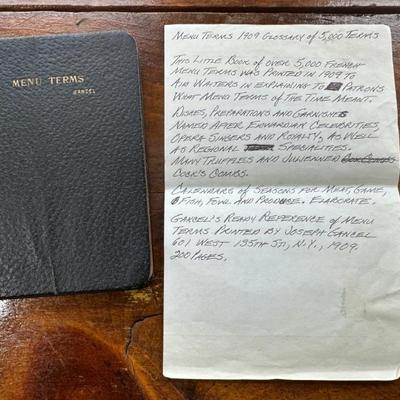 MENU TERMS
GANCEL
MENU TERMS 1909 GLOSSARY OF 5,000 TERMS
THIS LITTLE BOOK OF OVER 5,000 FRENCH
MENU TERMS WAS PRINTED IN 1909 TO
AID WAITERS IN EXPLAINING TO PATRONS
WHAT MENU TERMS OF THE TIME MEANT.
DISHES, PREPARATIONS AND GARNISHES
NAMED AFTER EDWARDIAN CELEBRITIES
OPERA SINGERS AND ROYALTY, AS WELL
AS REGIONAL SPECIALITIES.
MANY TRUFFLES AND JULIENNED
COCK'S COMBS.
CALENDARS OF SEASONS FOR MEAT, GAME,
FISH, FOWL AND PRODUCE. ELABORATE.
GANCEL'S READY REFERENCE OF MENU
TERMS PRINTED BY JOSEPH GANCEL
601 WEST 135TH ST., N.Y., 1909.
200 PAGES.